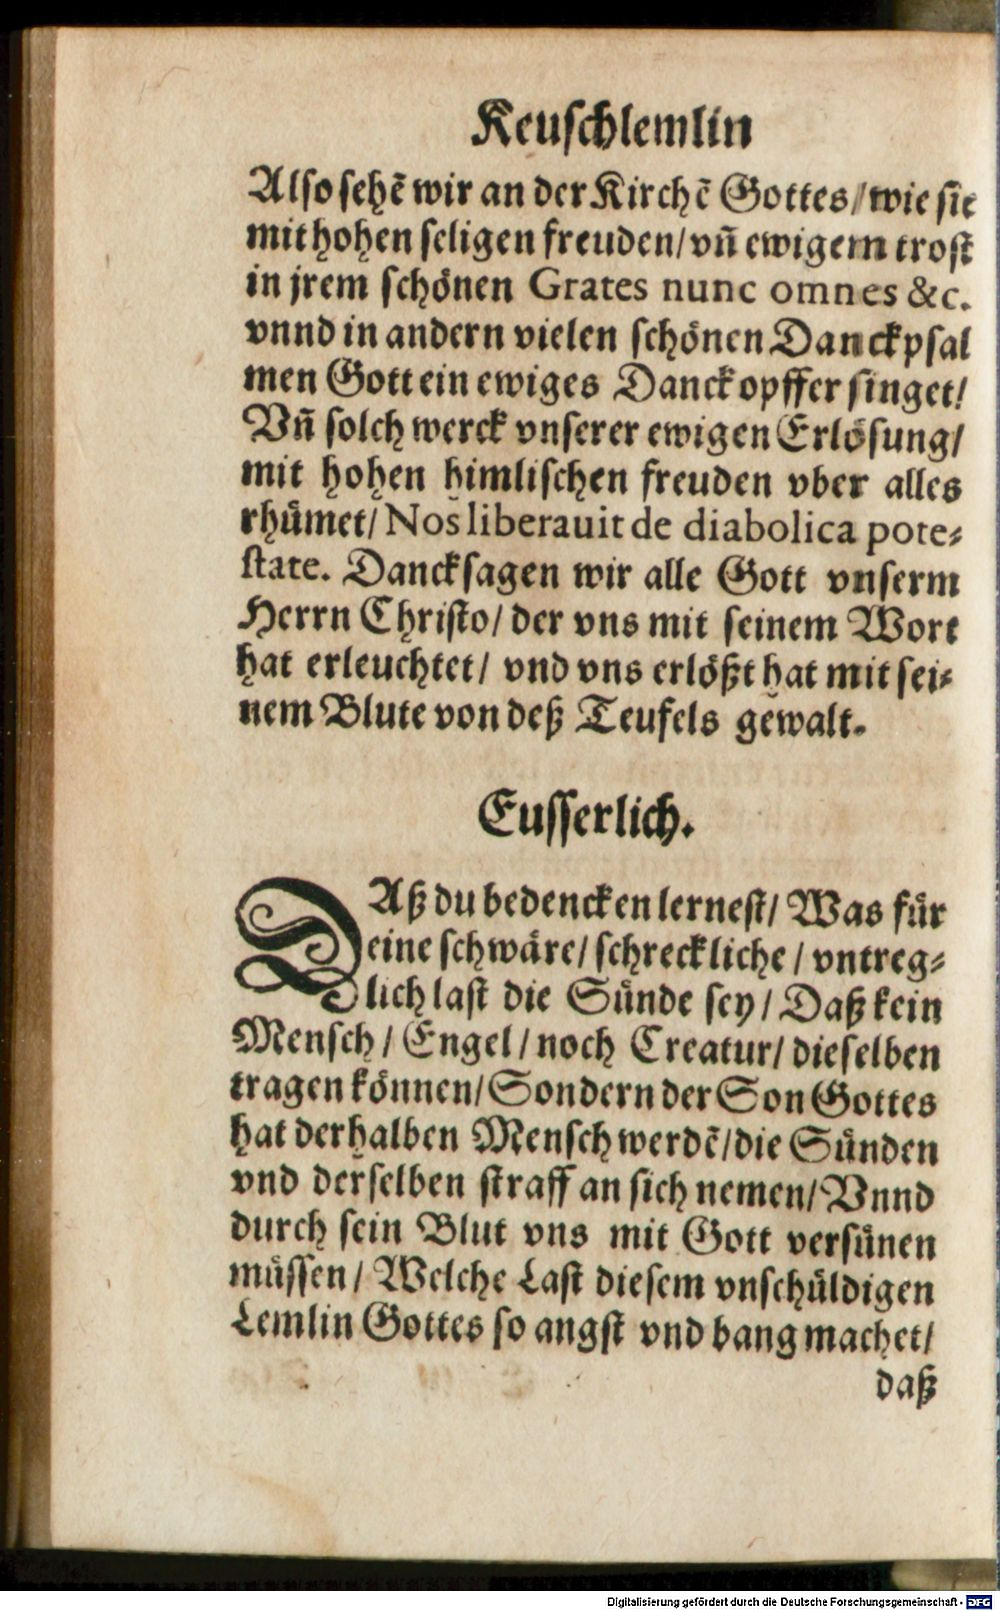 Keuschlemlin
Also sehē wir an der Kirchē Gottes/ wie sie
mit hohen seligen freuden/ vñ ewigem trost
in jrem schönen Grates nunc omnes &c.
vnnd in andern vielen schönen Danckpsal
men Gott ein ewiges Danckopffer singet/
Vñ solch werck vnserer ewigen Erlösung/
mit hohen himlischen freuden vber alles
rhümet/ Nos liberauit de diabolica pote-
state. Dancksagen wir alle Gott vnserm
Herrn Christo/ der vns mit seinem Wort
hat erleuchtet/ vnd vns erlößt hat mit sei-
nem Blute von deß Teufels gewalt.
Eusserlich.
DAß du bedencken lernest/ Was für
eine schwäre/ schreckliche/ vntreg-
lich last die Sünde sey/ Daß kein
Mensch/ Engel/ noch Creatur/ dieselben
tragen können/ Sondern der Son Gottes
hat derhalben Mensch werdē/ die Sünden
vnd derselben straff an sich nemen/ Vnnd
durch sein Blut vns mit Gott versünen
müssen/ Welche Last diesem vnschüldigen
Lemlin Gottes so angst vnd bang machet/
daß
Digitalisierung gefördert durch die Deutsche Forschungsgemeinschaft - DFG